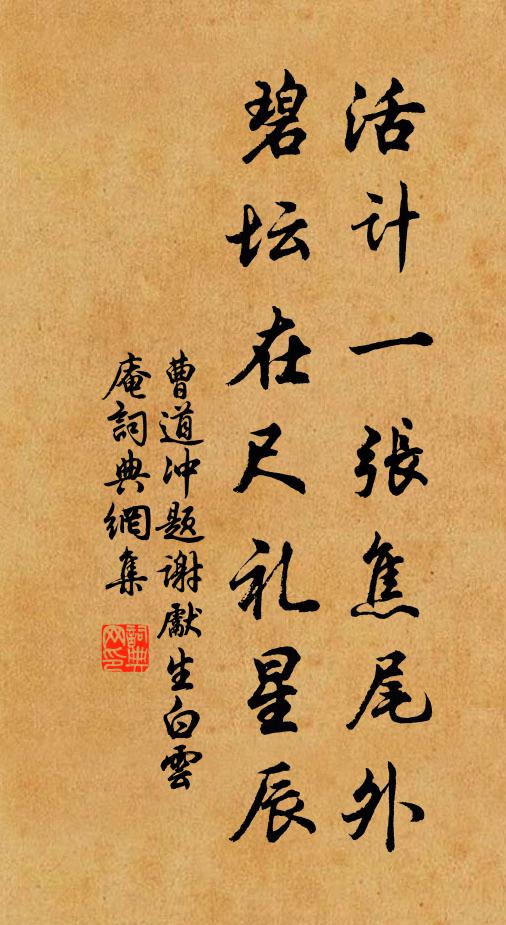 活计一張焦尾外
碧坛在尺礼星辰
曹道冲题谢獻生白雲
庵詞典網集
詞典網印